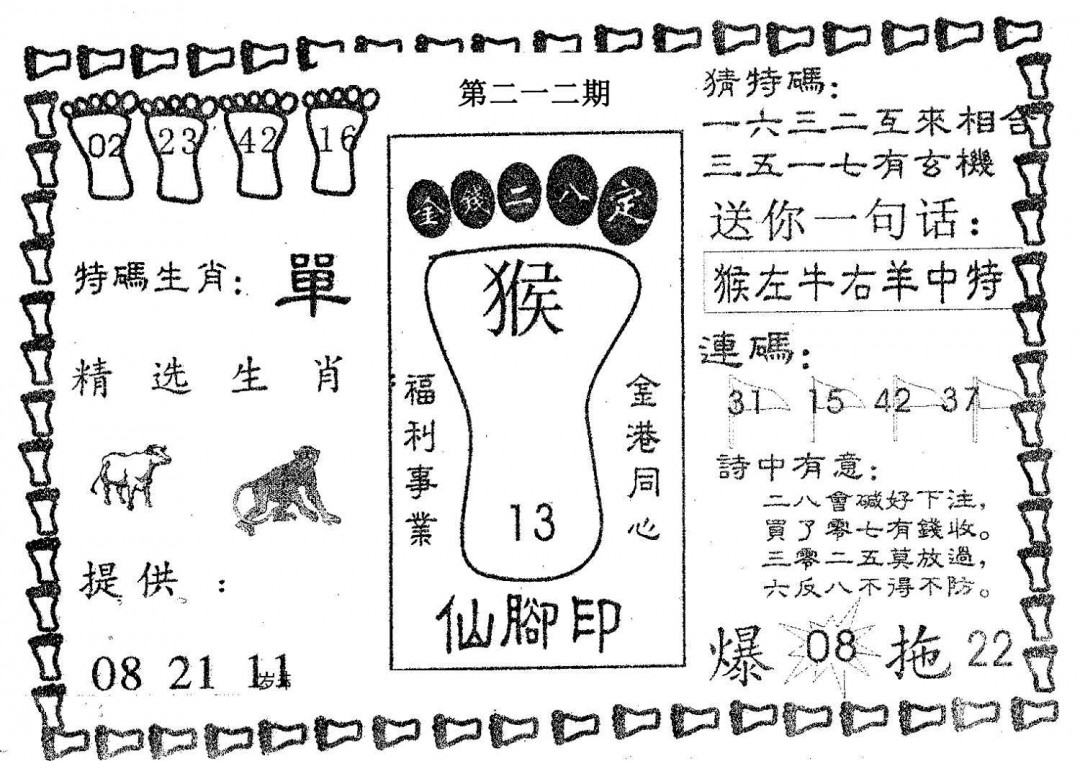 第二一二期
02 23 42 16
特碼生肖：單
精选生肖
提供：
08 21 11
金錢二八定
猴
福利事業
金港同心
13
仙腳印
猜特碼：
一六三二互來相合
三五一七有玄機
送你一句话：
猴左牛右羊中特
連碼：
31 15 42 37
詩中有意：
二八會碱好下注，
買了零七有錢收。
三零二五莫放過，
六反八不得不防。
爆 08 拖 22